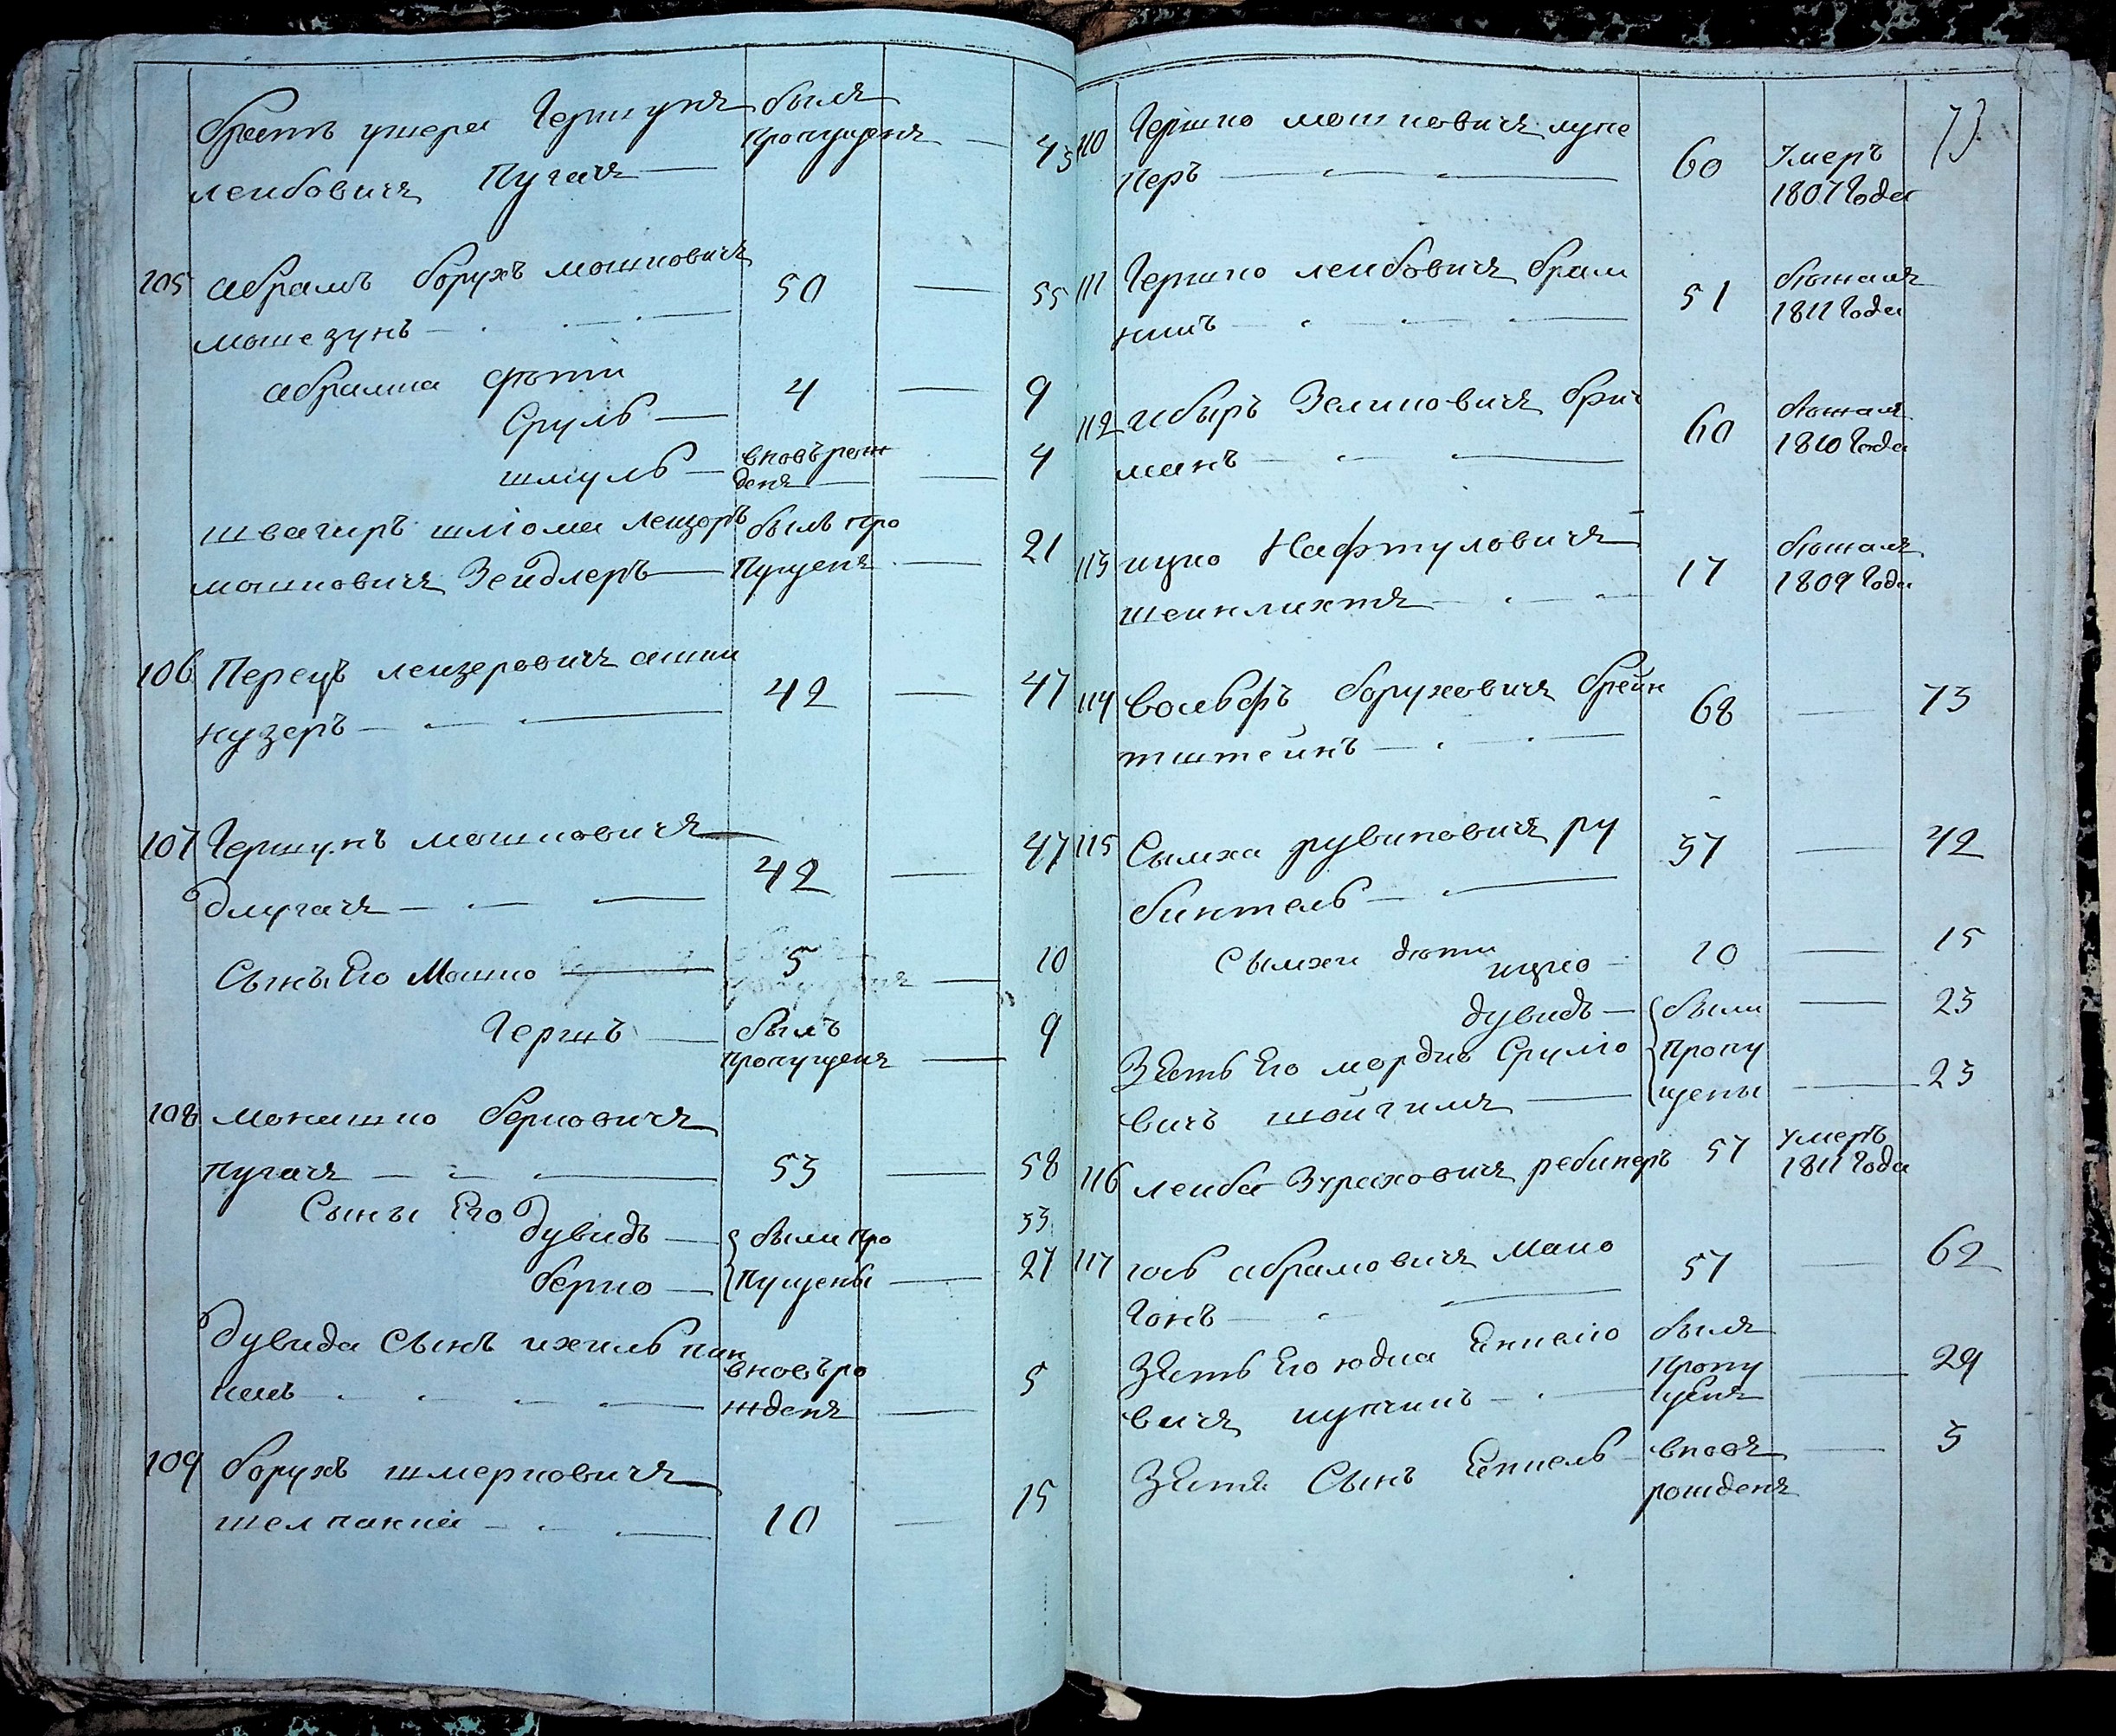 братъ ушера Гершунъ былъ
пропущенъ — 43
леибовичъ Пугачъ —
105 абрамъ борухъ мошковичъ 50 — 55
мошезунъ —
абрамка дѣти
Сруль — 4 — 9
шмуль — вновьрож
денъ — 4
швагиръ шліома Лейзоръ былъ про
мошковичъ Зейдлеръ — Пущенъ — 21
106 Перецъ лейзеровичъ ашки
нузеръ — 42 — 47
107 Гершунъ мошковичъ
длугачъ — 42 — 47
Сынъ Его Мошко — 5 — 10
Гершъ — былъ
пропущенъ — 9
108 монишко берковичъ
пугачъ — 53 — 58
Сыны Его дувидъ — были про 33
берко — Пущены — 27
дувида Сынъ ихиль пин
вновьро
жденъ — 5
109 борухъ шмерковичъ
10 — 15
73
110 Гершко мошковичъ лупе
перъ — 60 Умеръ
1807 Года
111 Гершко леибовичъ брам
никъ — 51 бѣжалъ
1811 Года
112 Зеликовичъ бри
манъ — 60 бѣжалъ
1810 Года
113 ицко Нафтуловичъ
шеинлихтъ — 17 бѣжалъ
1809 Года
114 вольфъ боруховичъ брейн
тштейнъ — 68 — 73
115 Сымха рувиновичъ ру
бинтель — 37 — 42
Сымхи дѣти
ицко — 10 — 15
дувидъ — были — 23
Зять Его мордко Срулю Пропу
вичъ шойхимъ — щены — 23
116 леиба Зураховичъ ребинеръ 57 умеръ
1811 Года
117 іось абрамовичъ Мано
Гонъ — 57 — 62
Зять Его юдка Енкелю былъ
Пропу
вичъ — щенъ — 29
Зятя Сынъ Енкель — вновь
рожденъ — 3